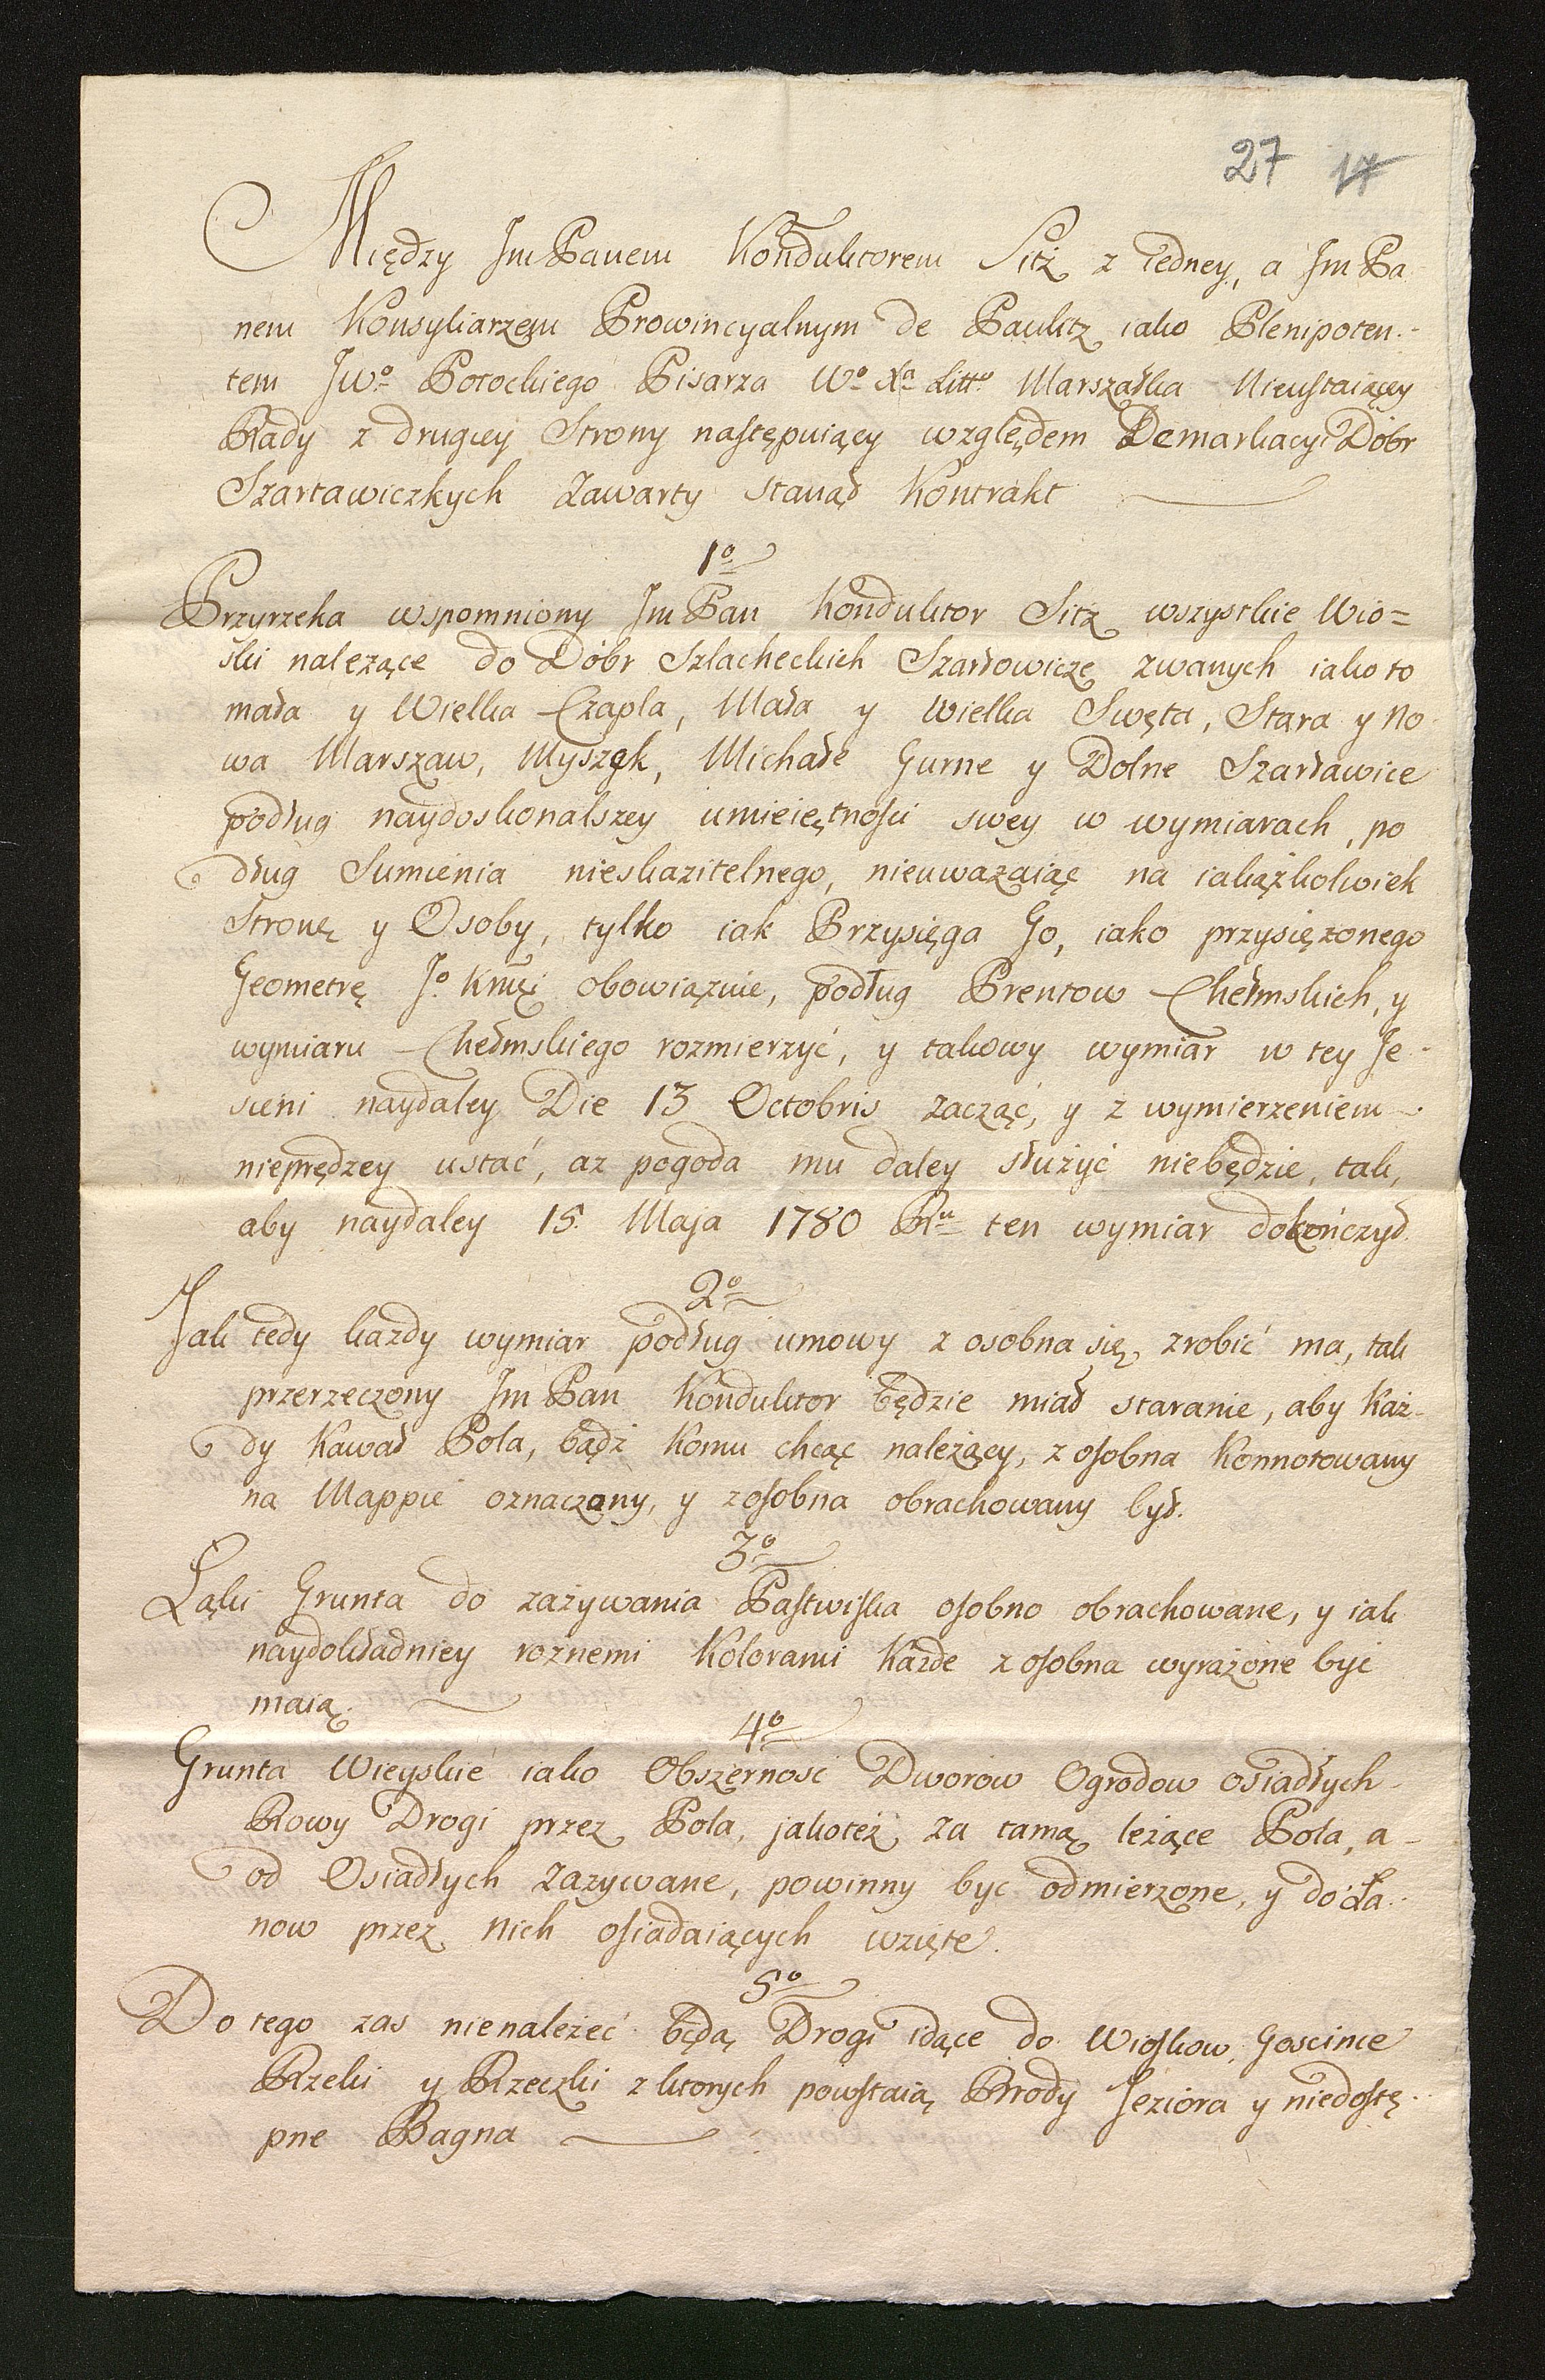 27 17
Między Jm Panem Konduktorem Sitz z iedney, a Jm Pa
nem Konsyliarzem Prowincyalnym de Pauletz iako Plenipoten-
tem Jwo Potockiego Pisarza Wo Xa Litto Marszałka Nieustaiącey
Rady z drugiey Strony następuiący względem Demarkacyi Dobr
Szartawiczkych zawarty stanął Kontrakt
1o
Przyrzeka wspomniony Jm Pan Konduktor Sitz wszystkie Wio=
ski należące do Dobr Szlacheckich Szartowicze zwanych iako to
mała y Wielka Czapla, Mała y Wielka Swęta, Stara y No
wa Marszaw, Myszek, Michałe Gurne y Dolne Szartawice
podług naydoskonalszey umieiętności swey w wymiarach, po
dług Sumienia nieskazitelnego, nieuwazaiąc na iakążkolwiek
Stronę y Osoby, tylko iak Przysięga Go, iako przysięzonego
Geometrę Jo Kmci obowiązuie, podług Prentow Chełmskich, y
wymiaru Chełmskiego rozmierzyć, y takowy wymiar w tey Je-
sieni naydaley Die 13 Octobris zacząć, y z wymierzeniem
nieprędzey ustać, az pogoda mu daley służyć niebędzie, tak,
aby naydaley 15. Maja 1780 Ru ten wymiar dokończył.
2o
Jak tedy kazdy wymiar podług umowy z osobna się zrobić ma, tak
przerzeczony Jm Pan Konduktor będzie miał staranie, aby Każ-
dy Kawał Pola, bądź Komu chcąc należący, z osobna Konnotowany
na Mappie oznaczony, y zosobna obrachowany był.
3o
Łąki Grunta do zażywania Pastwiska osobno obrachowane, y iak
naydokładniey roznemi Kolorami Każde z osobna wyrażone być
maią.
4o
Grunta Wieyskie iako Obszerność Dworow Ogrodow osiadłych
Rowy Drogi przez Pola, jakoteż za tamą leżące Pola, a-
od Osiadłych zazywane, powinny byc odmierzone, y do Ła-
now przez nich osiadaiących wzięte.
5o
Do tego zas nienależeć będą Drogi idące do Wioskow, Goscince
Rzeki y Rzeczki z ktorych powstaią Brody Jeziora y niedostę-
pne Bagna